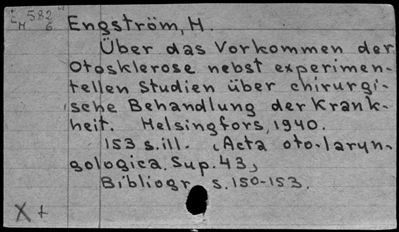 E 582
M 6
Engström, H.
Über das Vorkommen der
Otosklerose nebst experimen-
tellen Studien über chirurgi-
sche Behandlung der Krank-
heit. Helsingfors, 1940.
153 s. ill. (Acta oto-laryn-
gologica. Sup. 43)
Bibliogr. s. 150-153.
X +